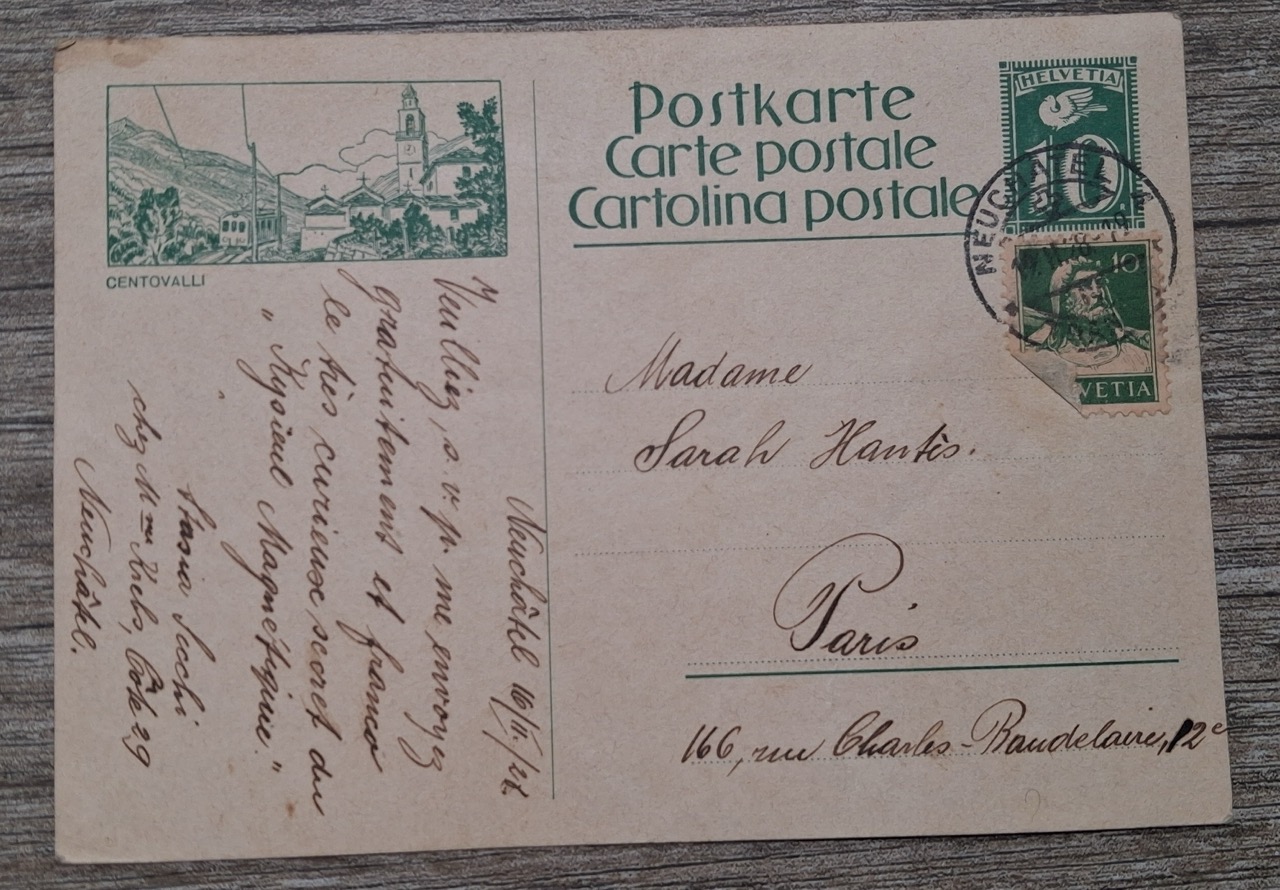 Postkarte
Carte postale
Cartolina postale
HELVETIA
10
NEUCHÂTEL
10
VETIA
CENTOVALLI
Madame
Sarah Hantis.
Paris
166, rue Charles-Baudelaire, 12e
Neuchâtel 16/11/27.
Veuillez, s. v. p. me envoyez
gratuitement et franco
le très curieux secret du
"Kysieul Magnétique."
Stasia
chez Mme Côte 29
Neuchâtel.